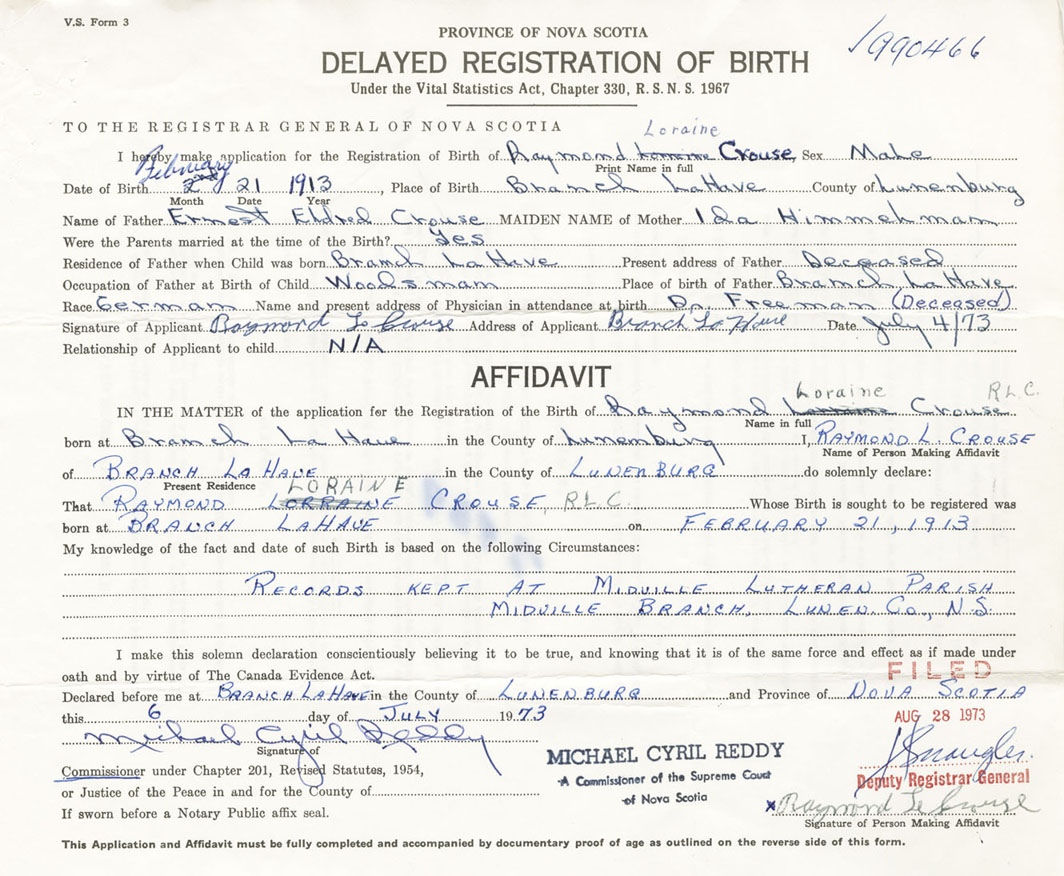 V.S. Form 3
PROVINCE OF NOVA SCOTIA
1990466
DELAYED REGISTRATION OF BIRTH
Under the Vital Statistics Act, Chapter 330, R. S. N. S. 1967
TO THE REGISTRAR GENERAL OF NOVA SCOTIA
Loraine
I hereby make application for the Registration of Birth of Raymond Crouse Sex Male
Print Name in full
February
Date of Birth 21 1913, Place of Birth Branch LaHave County of Lunenburg
Month Date Year
Name of Father Ernest Eldred Crouse MAIDEN NAME of Mother Ida Himmelman
Were the Parents married at the time of the Birth? Yes
Residence of Father when Child was born Branch LaHave Present address of Father Deceased
Occupation of Father at Birth of Child Woodsman Place of birth of Father Branch LaHave
Race German Name and present address of Physician in attendance at birth Dr. Freeman (Deceased)
Signature of Applicant Raymond L Crouse Address of Applicant Branch La Have Date July 4/73
Relationship of Applicant to child N/A
AFFIDAVIT
Loraine R.L.C.
IN THE MATTER of the application for the Registration of the Birth of Raymond Crouse
Name in full
born at Branch La Have in the County of Lunenburg I, RAYMOND L. CROUSE
Name of Person Making Affidavit
of BRANCH LAHAVE in the County of LUNENBURG do solemnly declare:
Present Residence LORAINE
That RAYMOND LORRAINE CROUSE, R.L.C. Whose Birth is sought to be registered was
born at BRANCH LAHAVE on FEBRUARY 21, 1913
My knowledge of the fact and date of such Birth is based on the following Circumstances:
RECORDS KEPT AT MIDVILLE LUTHERAN PARISH
MIDVILLE BRANCH, LUNEN. CO., N.S.
I make this solemn declaration conscientiously believing it to be true, and knowing that it is of the same force and effect as if made under
oath and by virtue of The Canada Evidence Act.
FILED
Declared before me at BRANCH LAHAVE in the County of LUNENBURG and Province of NOVA SCOTIA
this 6 day of JULY 1973
AUG 28 1973
Michael Cyril Reddy
Signature of
MICHAEL CYRIL REDDY
A Commissioner of the Supreme Court
of Nova Scotia
Deputy Registrar General
Commissioner under Chapter 201, Revised Statutes, 1954,
or Justice of the Peace in and for the County of
x Raymond L Crouse
Signature of Person Making Affidavit
If sworn before a Notary Public affix seal.
This Application and Affidavit must be fully completed and accompanied by documentary proof of age as outlined on the reverse side of this form.